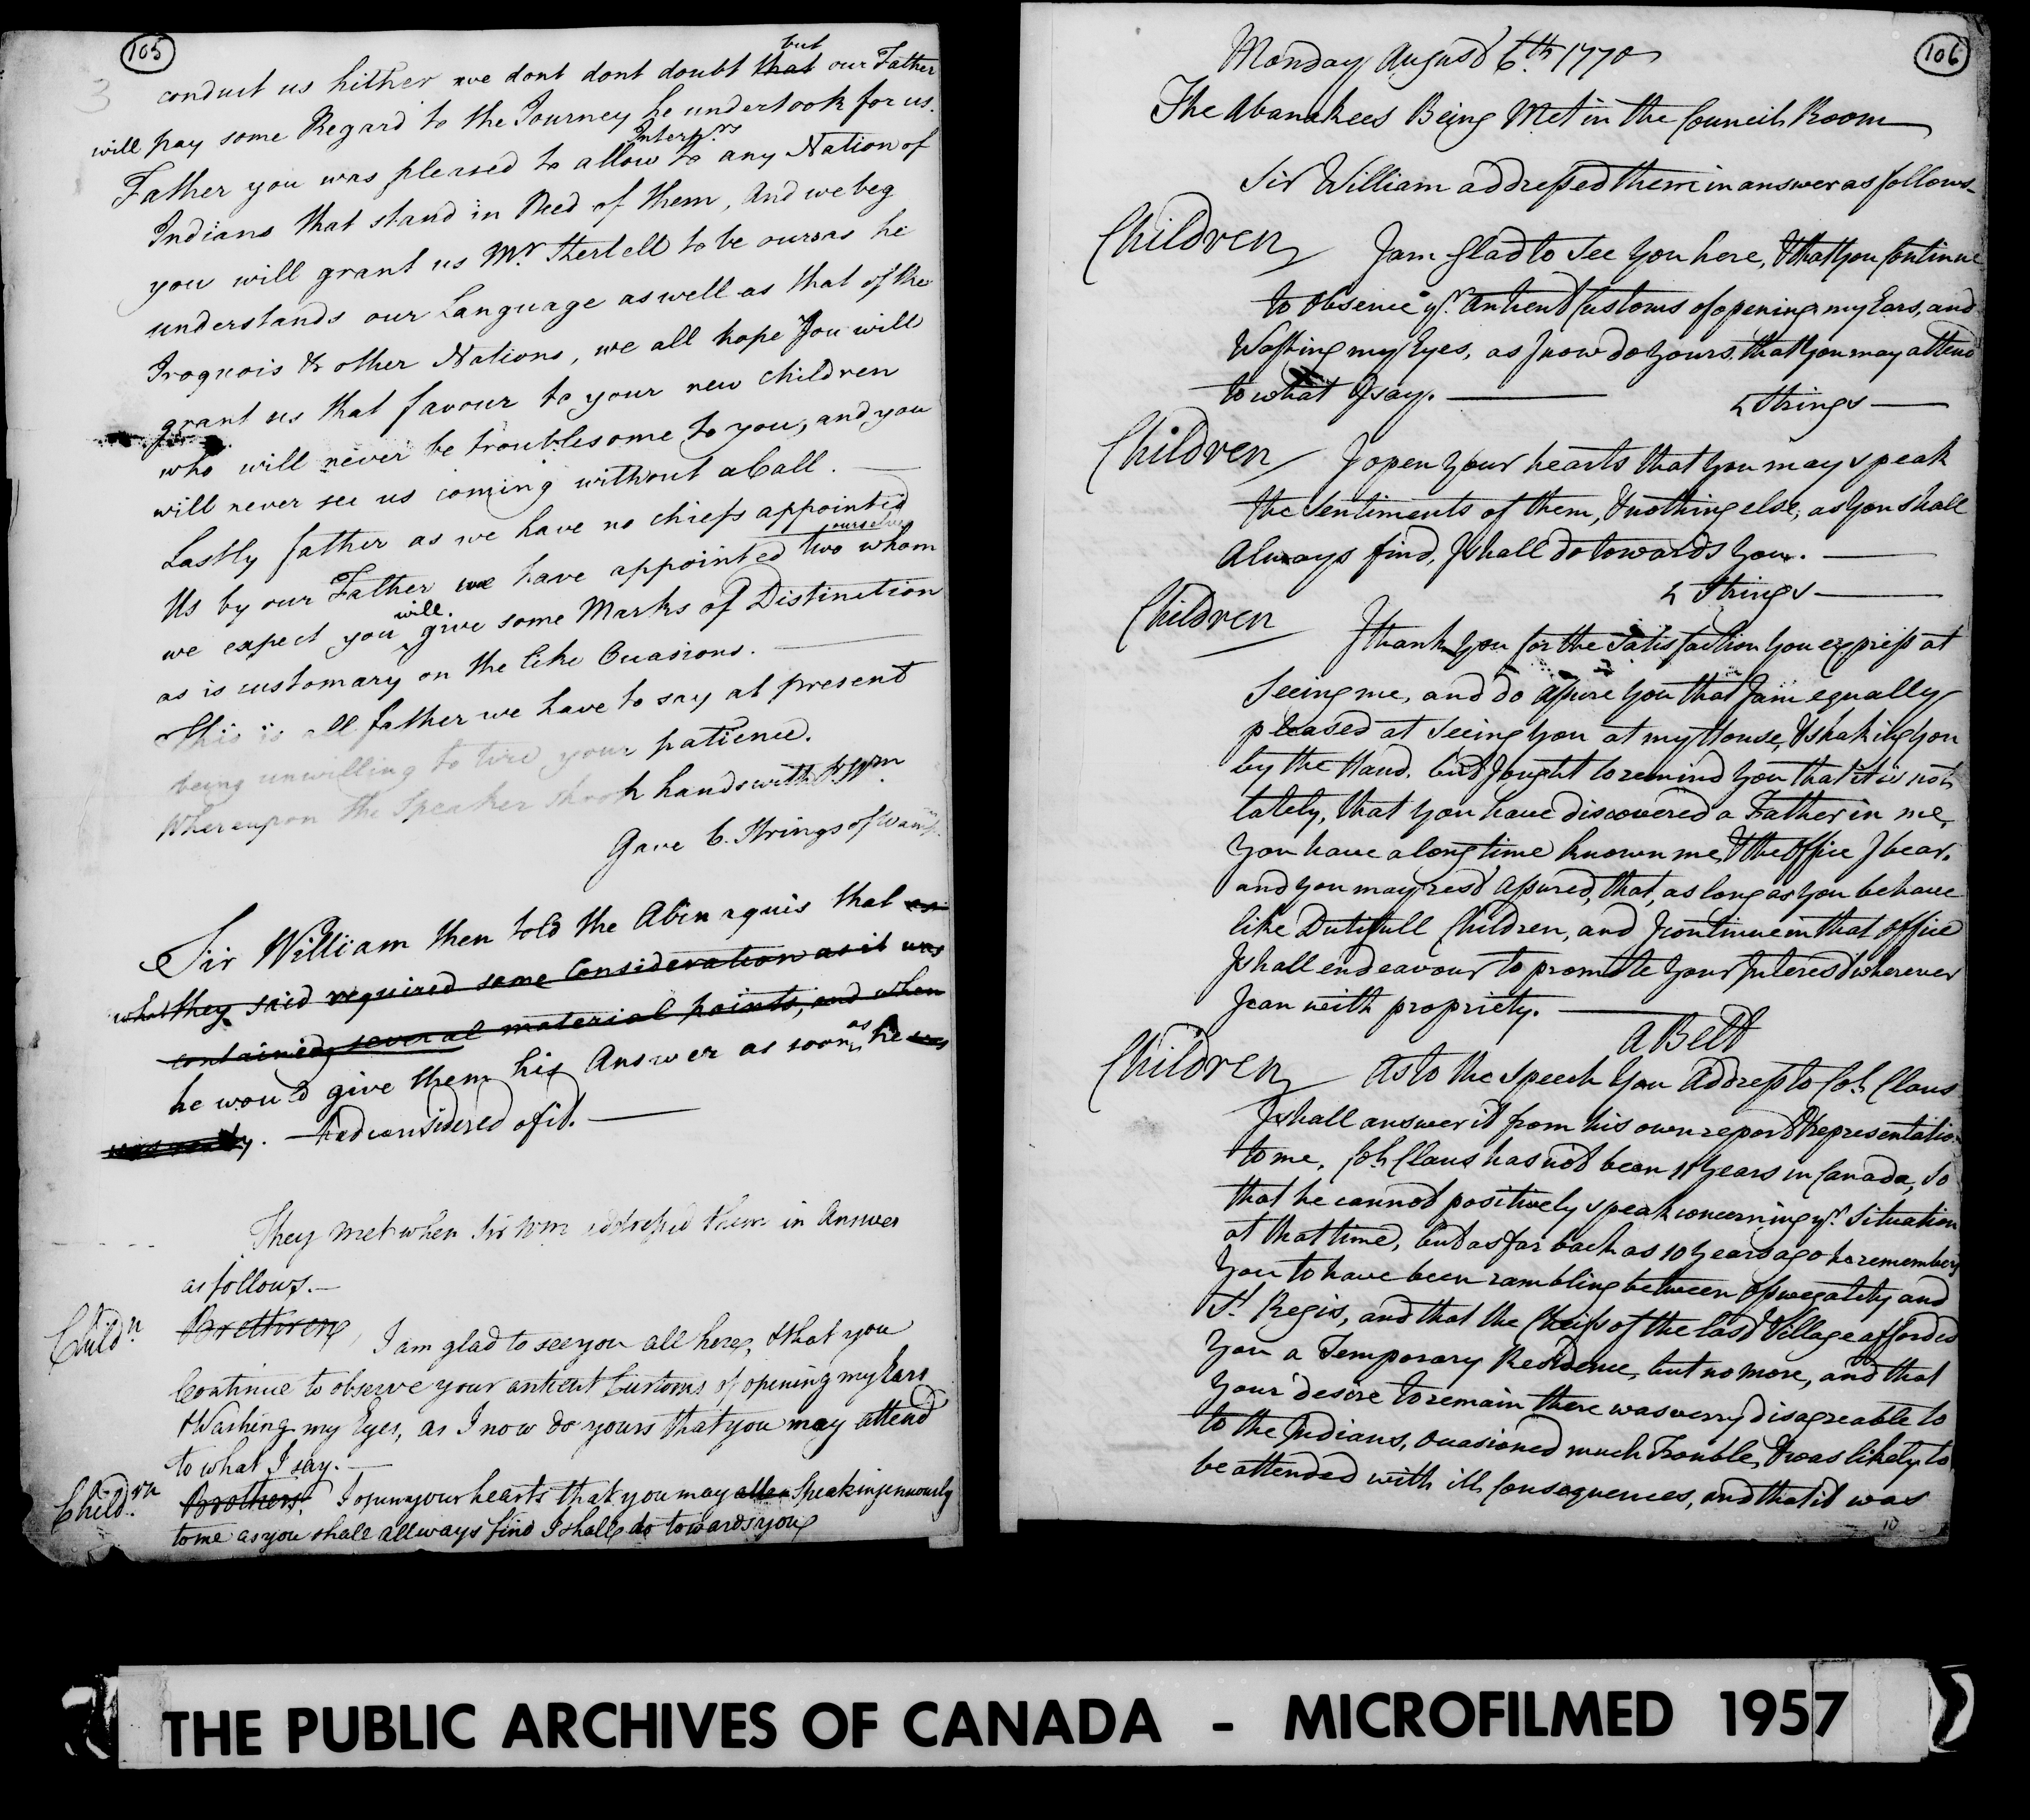 105
3
conduct us hither we dont dont doubt that but our Father
will pay some Regard to the Journey he undertook for us.
Father you was pleased to allow Interp.rs to any Nation of
Indians that stand in Need of them, And we beg
you will grant us Mr. to be ours as he
understands our Language as well as that of the
Iroquois & other Nations, we all hope You will
grant us that favour to your new children
who will never be troublesome to you, and you
will never see us coming without a Call.
Lastly father as we have no chiefs appointed
Us by our Father we have appointed two ourselves whom
we expect you will give some Marks of Distinction
as is customary on the like Occasions.
This is all father we have to say at present
being unwilling to tire your patience.
Whereupon the Speaker shook hands with Sr. Wm
Gave 6. Strings of Wamp.
Sir William then told the Abinaquis that as
what they said required some Consideration as it was
contained several material points, and when
he would give them his Answer as soon as he was
was ready. had considered of it.
They met when Sir Wm addressed them in Answer
as follows.
Child.n Brethren, I am glad to see you all here, & that you
Continue to observe your antient Customs, of opening my Ears
& Washing my Eyes, as I now do yours that you may attend
to what I say.
Child.rn Brothers. I open your hearts that you may allen Speak ingenuously
to me as you shall allways find I shall do towards you
106
Monday August 6.th 1770
The Abanakees Being Met in the Council Room
Sir William addressed them in answer as follows
Children I am Glad to See You here, & that you Continue
to Observe yr. Antient Customs of opening my Ears, and
Washing my Eyes, as I now do Yours, that you may attend
to what I say.
4 Strings
Children I open Your hearts that you may speak
the Sentiments of them, & nothing else, as You shall
Always find, I shall do towards You.
4 Strings
Children I thank You for the Satisfaction You express at
Seeing me, and do assure You that I am equally
pleased at Seeing You at my House, & shaking You
by the Hand. but I ought to remind You that it is not
lately, that You have discovered a Father in me,
You have a long time known me, & the Office I bear.
and you may rest assured, that, as long as you behave
like Dutifull Children, and I continue in that office
I shall endeavour to promote Your Interest wherever
I can with propriety.
A Belt
Children As to the Speech You Address to Col. Claus
I shall answer it from his own report & representatio
to me, Col. Claus has not been 11 Years in Canada, So
that he cannot positively speak concerning yr. Situation
at that time, but as far back as 10 Years ago he remembers
You to have been rambling between Oswegatchy and
St. Regis, and that the Cheifs of the last Village afforded
You a Temporary Residence, but no more, and that
Your desire to remain there was verry disagreable to
to the Indians, Ocasioned much Trouble, & was likely to
be attended with ill Consequences, and that it was
10
THE PUBLIC ARCHIVES OF CANADA - MICROFILMED 1957